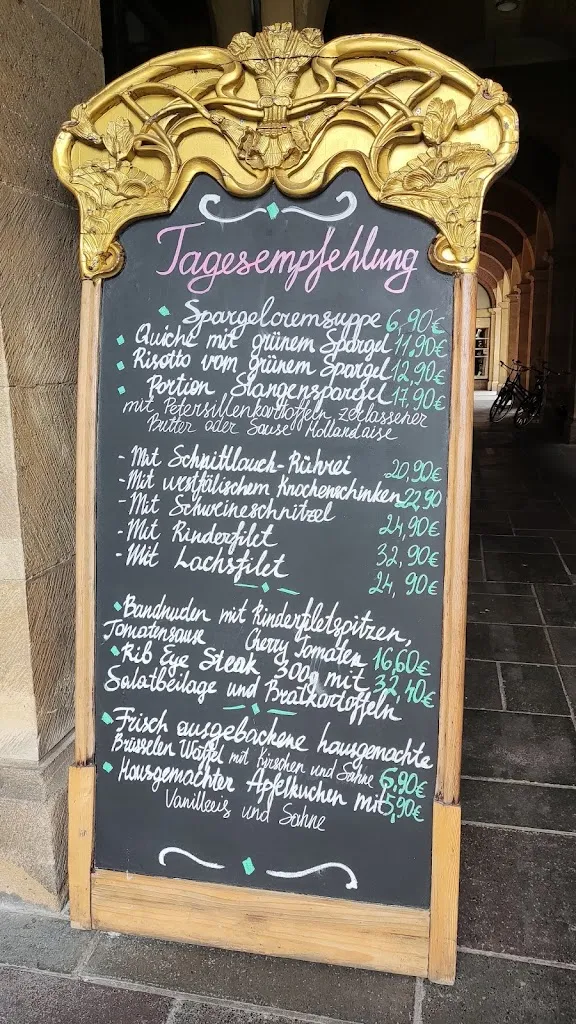 Tagesempfehlung
Spargelcremsuppe 6,90€
Quiche mit grünem Spargel 11,90€
Risotto vom grünem Spargel 12,90€
Portion Stangenspargel 17,90€
mit Petersilienkartoffeln, zerlassener
Butter oder Sause Hollandaise
- Mit Schnittlauch-Rührei 20,90€
- Mit westfälischem Knochenschinken 22,90
- Mit Schweineschnitzel 24,90€
- Mit Rinderfilet 32,90€
- Mit Lachsfilet 24,90€
Bandnuden mit Rinderfiletspitzen,
Tomatensause Cherry Tomaten 16,60€
Rib Eye Steak 300g mit 32,40€
Salatbeilage und Bratkartoffeln
Frisch ausgebackene hausgemachte
Brüsselen Waffel mit Kirschen und Sahne 6,90€
Hausgemachter Apfelkuchen mit 5,90€
Vanilleeis und Sahne